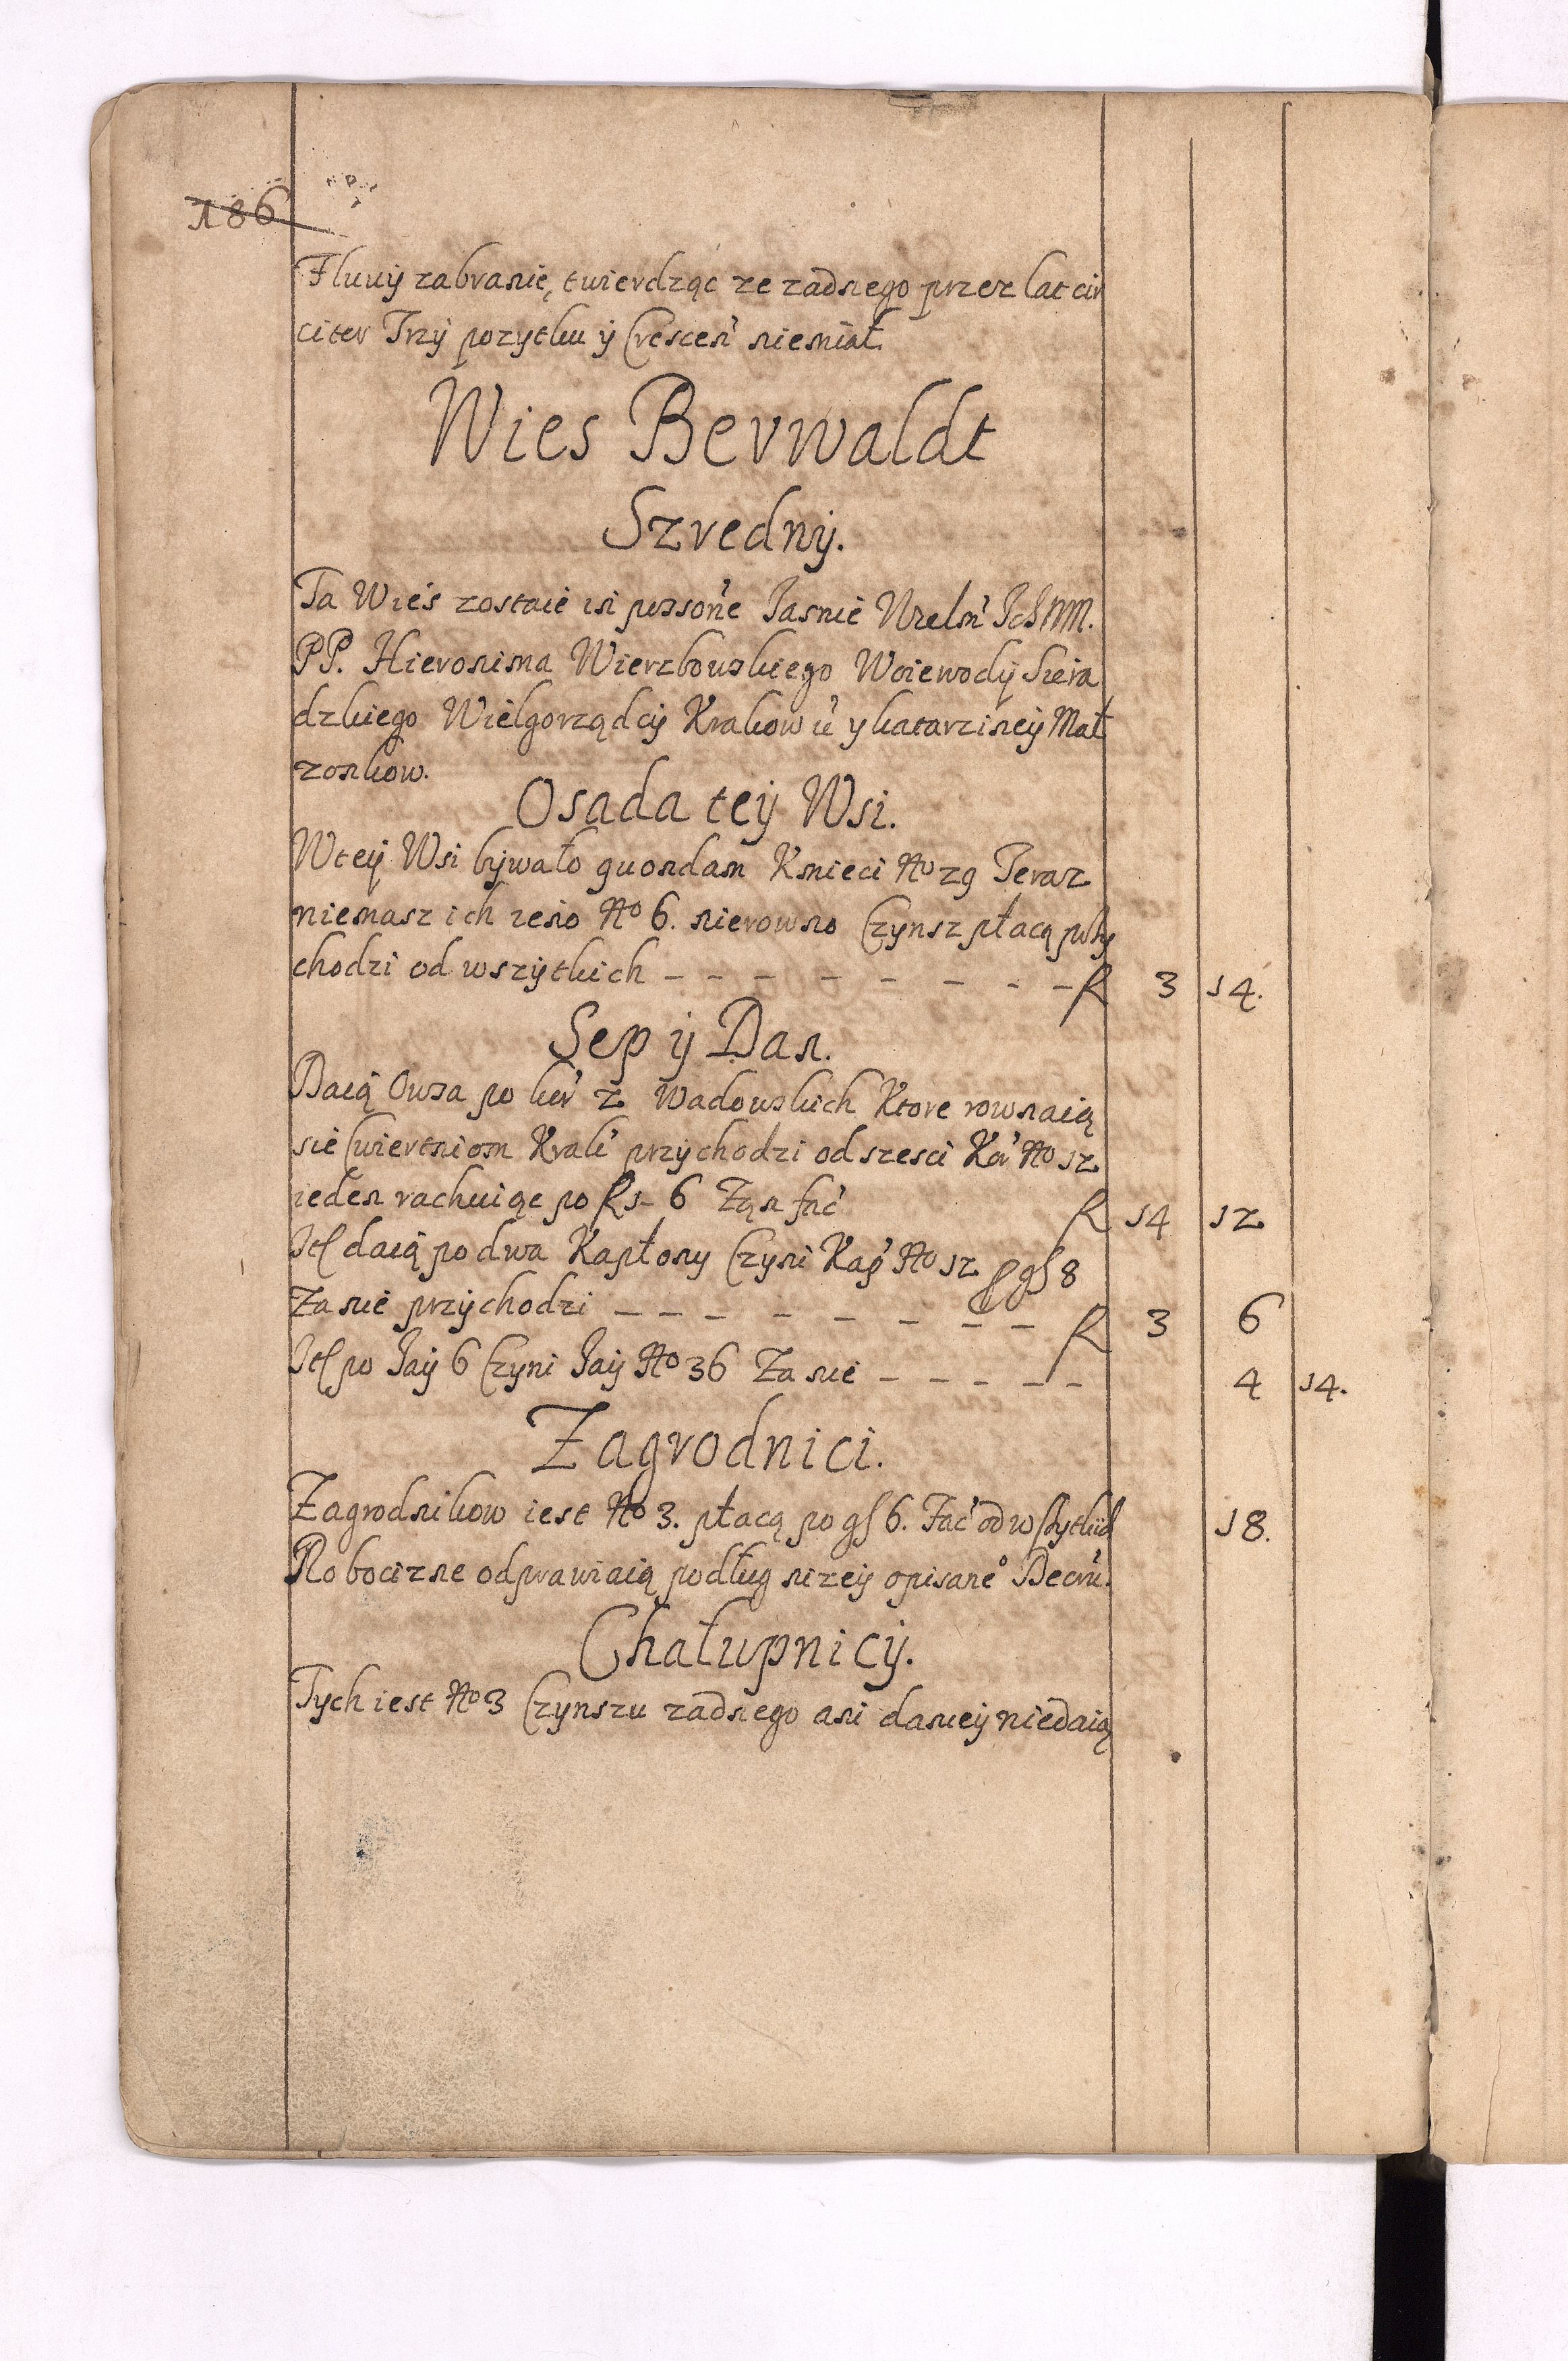 186
Fluuij zabranie, twierdząc ze zadnego przez lat cir
citer Trzÿ pozytku ÿ Crescen̄ niemiał.
Wies Berwaldt
Szrednÿ.
Ta Wieś zostaie in possone Jasnie Wielm JchMM.
PP. Hieronima Wierzbowskiego Woiewodÿ Siera
dzkiego Wielgorządcÿ Krakow ū y katarzineÿ Mał
zonkow.
Osada teÿ Wsi.
Wteÿ Wsi bÿwało quondam Kmieci No 29 Teraz
niemasz ich ieno No 6. nierowno Czynsz płacą przy
chodzi od wszÿtkich - - - - - - - - f 3 14.
Sep ÿ Dan.
Daią Owsa po kor 2 Wadowskich Ktore rownaią
sie Cwiertniom Krak przÿchodzi od szesci Kor No 12
ieden rachuiąc po f 1 - 6 Ząn fac f 14 12
Itl daią po dwa Kapłony Czyni Kap No 12 p gl 8
Za nie przÿchodzi - - - - - - - - f 3 6
Itl po Jaÿ 6 Czyni Jaÿ No 36 Za nie - - - - - 4 14.
Zagrodnici.
Zagrodnikow iest No 3. płacą po gl 6. Fac od wszytkich 18.
Robocizne odprawiaią podług nizeÿ opisane° Decru.
Chałupnicÿ.
Tych iest No 3 Czynszu zadnego ani danieÿ niedaią